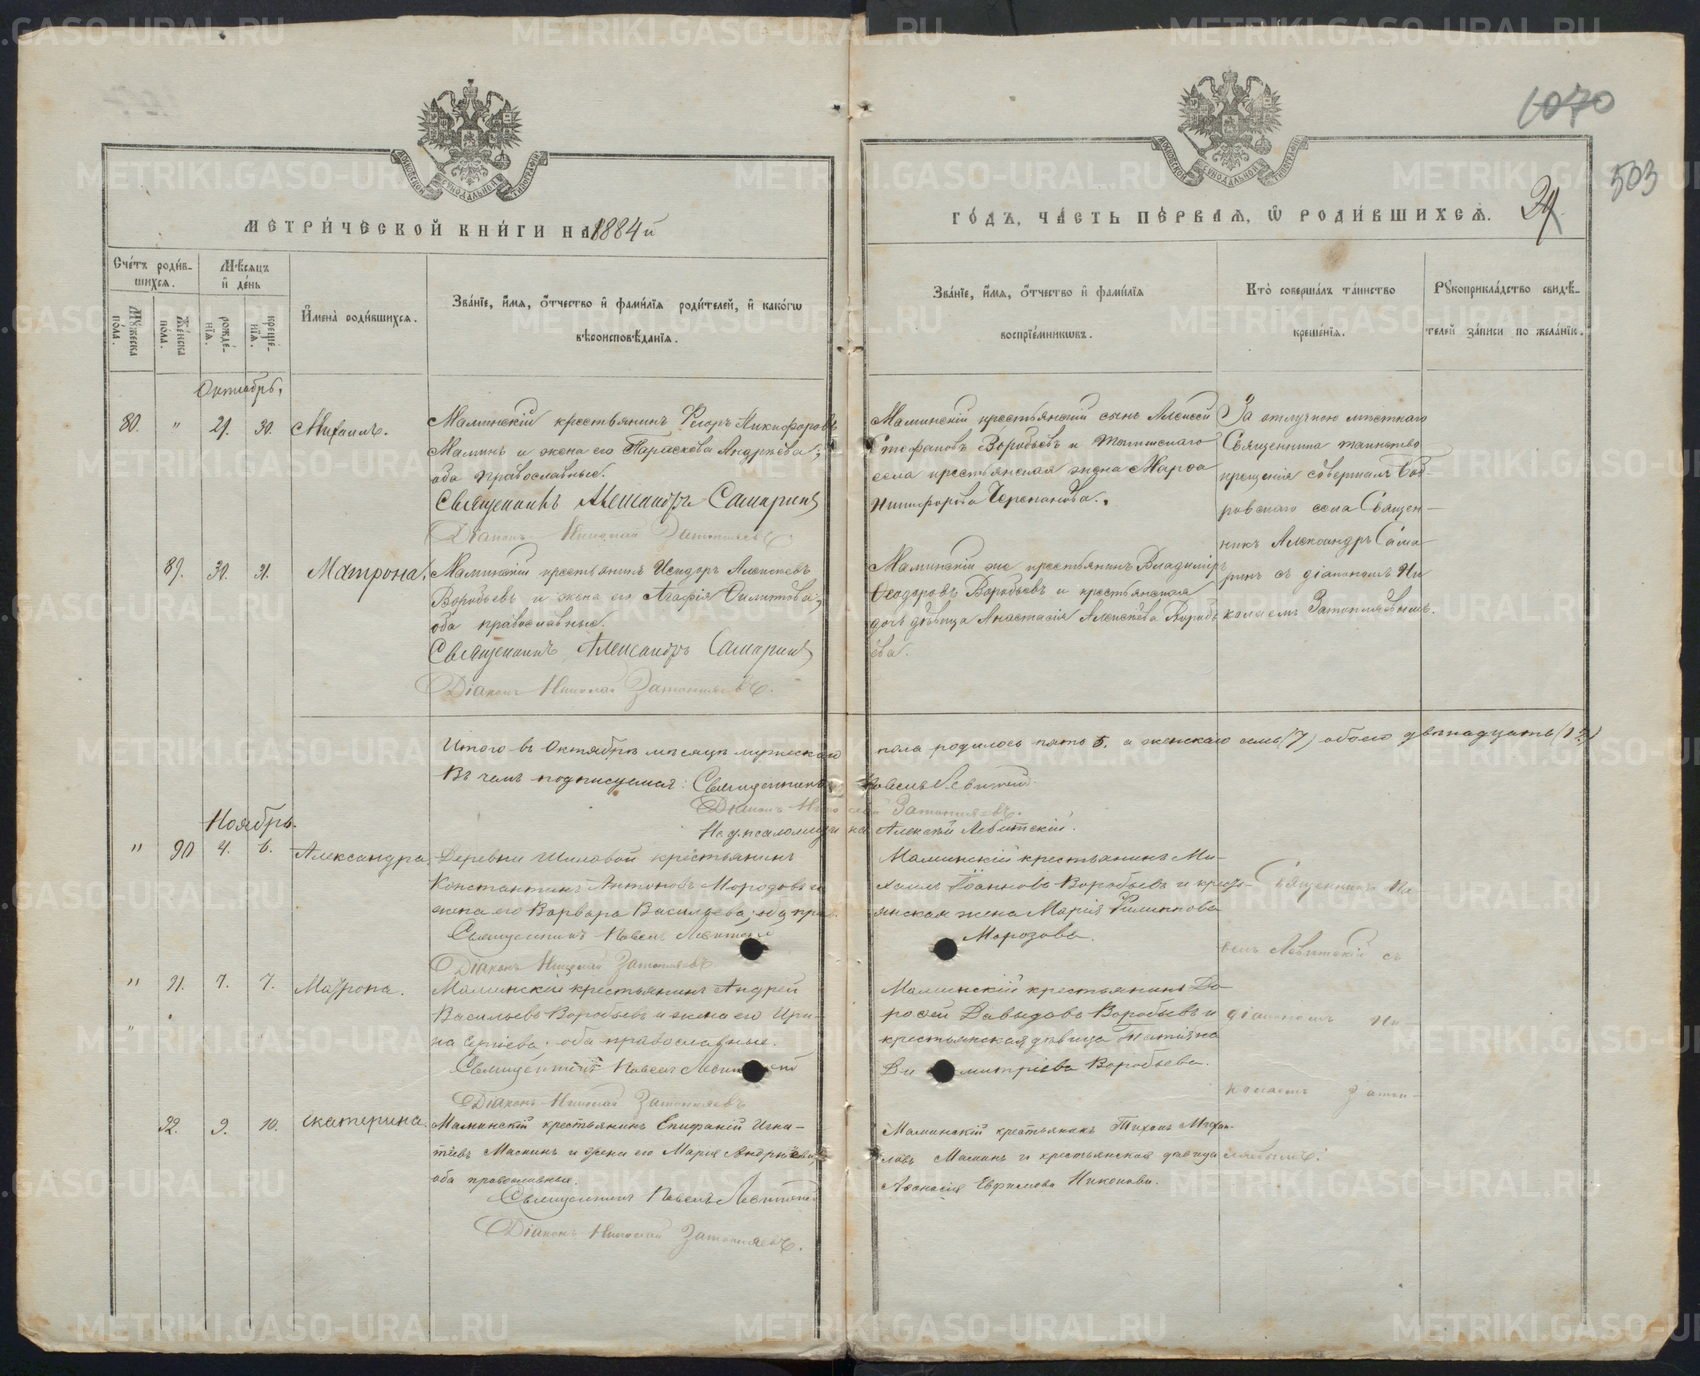 1070
503
29.
МЕТРИ́ЧЕСКОЙ КНИ́ГИ НА 1884 й
ГО́ДЪ, ЧА́СТЬ ПЕ́РВАѦ, Ѡ РОДИ́ВШИХСѦ.
Сче́тъ роди́в-
шихсѧ.
Мѣ́сѧцъ
и҆ де́нь
Мꙋ́жеска по́ла.
Же́нска по́ла.
рожде́-
нїѧ.
креще́-
нїѧ.
И҆мена̀ роди́вшихсѧ.
Зва́нїе, и҆́мѧ, ѻ҆́тчество и҆ фами́лїѧ роди́телей, и҆ како́гѡ
вѣроисповѣ́данїѧ.
Зва́нїе, и҆́мѧ, ѻ҆́тчество и҆ фами́лїѧ
воспрїе́мникѡвъ.
Кто̀ соверша́лъ та́инство
креще́нїѧ.
Рꙋкоприкла́дство свидѣ́-
телей за́писи по жела́нїю.
Октябрь.
80. " 29. 30. Михаилъ.
Маминскій крестьянинъ Ѳеоръ Никифоровъ
Маминъ и жена его Параскева Андреева,
оба православные.
Священникъ Александръ Самаринъ
Діаконъ Николай Затопляевъ.
Маминскій крестьянскій сынъ Алексей
Стефановъ Воробьевъ и
села крестьянская жена Марѳа
Никифорова Черепанова.
За отлучкою местнаго
Священника таинство
крещенія совершалъ Боб-
ровскаго села Священ-
никъ Александръ Сама-
ринъ съ діакономъ Ни
колаемъ Затопляевымъ.
89. 30. 31. Матрона.
Маминскій крестьянинъ Исидоръ Алексеевъ
Воробьевъ и жена его Агафія Филиппова,
оба православные.
Священникъ Александръ Самаринъ
Діаконъ Николай Затопляевъ.
Маминскій же крестьянинъ Владиміръ
Ѳеодоровъ Воробьевъ и крестьянская
дочь девица Анастасія Алексеева Воробь
ева.
Итого въ Октябре месяце мужескаго пола родилось пять 5. а женскаго семь (7) обоего двенадцать (12)
Въ чемъ подписуемся: Священникъ Павелъ Левитскій
Діаконъ Николай Затопляевъ.
И. д. псаломщика Алексей Левитскій.
Ноябрь.
" 90 4. 6. Александра.
Деревни Шиловой крестьянинъ
Константинъ Антоновъ Морозовъ и
жена его Варвара Васильева; оба прав.
Священникъ Павелъ Левитскій
Діаконъ Николай Затопляевъ
Маминскій крестьянинъ Ми-
хаилъ Іоанновъ Воробьевъ и кресть-
янская жена Марія Филиппова
Морозова.
Священникъ Па
велъ Левитскій съ
діакономъ Ни
колаемъ Затоп-
ляевымъ.
" 91. 7. 7. Матрона.
Маминскій крестьянинъ Андрей
Васильевъ Воробьевъ и жена его Ири-
на Сергіева; оба православные.
Священникъ Павелъ Левитскій
Діаконъ Николай Затопляевъ
Маминскій крестьянинъ До-
роѳей Давыдовъ Воробьевъ и
крестьянская девица Татіяна
Димитріева Воробьева.
92. 9. 10. Екатерина.
Маминскій крестьянинъ Епифаній Игна-
тіевъ Маминъ и жена его Марія Андреева,
оба православные.
Священникъ Павелъ Левитскій
Діаконъ Николай Затопляевъ.
Маминскій крестьянинъ Тихонъ Михаи-
ловъ Маминъ и крестьянская девица
Аѳанасія Евфимова Никонова.